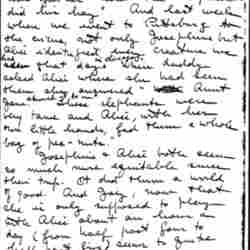 his day." And last week
when we went to Pittsburg to
the circus, not only Josephine but
Alice identified every creature we
saw that day. When daddy
asked Alice where she had seen
them she answered "Aunt
Jane". These elephants were
very tame and Alice, with her
own little hands, fed them a whole
bag of pea-nuts.
Josephine & Alice both seem
so much more equitable since
their trip. It did them a world
of good. And Josy, now that
she is only supposed to play
with Alice about an hour a
day (from half past four to
half past five) seems to